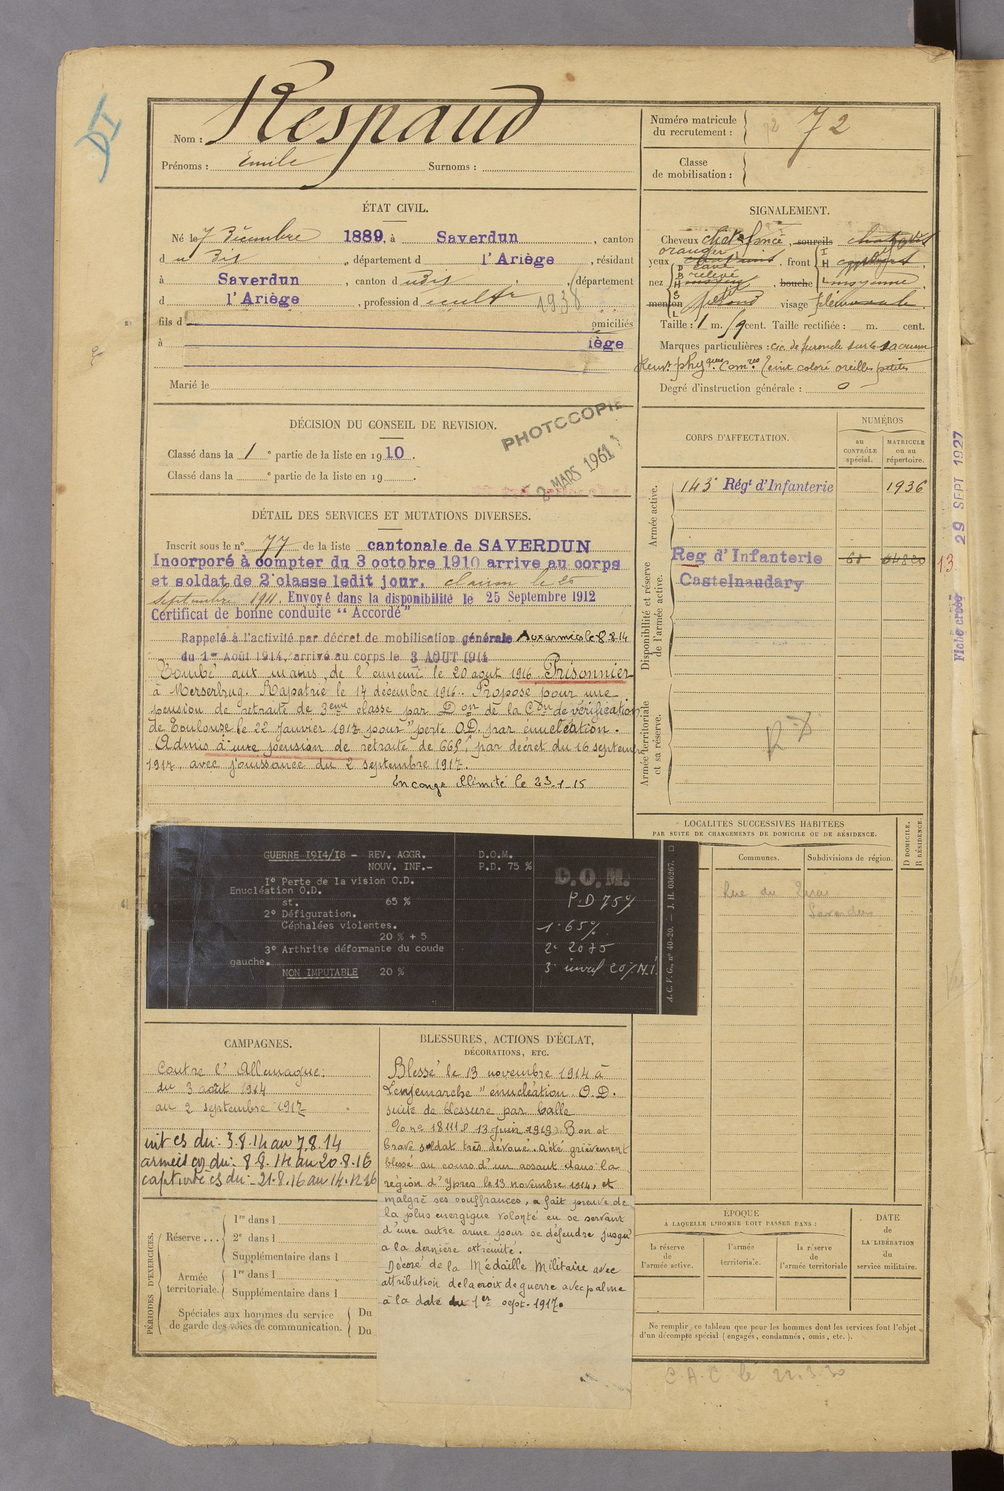 DI
Nom : Respaud
Prénoms : Emile Surnoms :
Numéro matricule
du recrutement : 72
Classe
de mobilisation :
ÉTAT CIVIL.
Né le 7 Décembre 1889, à Saverdun, canton
du Dit, département d l'Ariège, résidant
à Saverdun, canton du Dit, département
d l'Ariège, profession d cultr
1938
fils d
omiciliés
à iège
Marié le
SIGNALEMENT.
Cheveux chat. foncé, sourcils
yeux oranger, front
nez relevé, bouche moyenne
menton rond visage
Taille : 1 m. cent. Taille rectifiée : m. cent.
Marques particulières : cic. de furoncle sur le sacrum
Rensts physques comres Teint coloré oreilles petites
Degré d'instruction générale : 0
DÉCISION DU CONSEIL DE REVISION.
Classé dans la 1e partie de la liste en 1910.
Classé dans la e partie de la liste en 19 .
PHOTOCOPIE
2 MARS 1961
DÉTAIL DES SERVICES ET MUTATIONS DIVERSES.
Inscrit sous le n° 77 de la liste cantonale de SAVERDUN
Incorporé à compter du 3 octobre 1910 arrivé au corps
et soldat de 2e classe ledit jour. clairon le 26
septembre 1911. Envoyé dans la disponibilité le 25 Septembre 1912
Certificat de bonne conduite "Accordé"
Rappelé à l'activité par décret de mobilisation générale Aux armées le 8.8.14
du 1er Août 1914, arrivé au corps le 3 AOUT 1914
Tombé aux mains de l'ennemi le 20 août 1916 Prisonnier
à Merserbug. Rapatrié le 14 décembre 1916. Proposé pour une
pension de retraite de 3eme classe par Don de la Con de vérification
de Toulouse le 22 Janvier 1917 pour "perte O.D. par énucléation.
Admis à une pension de retraite de 66f, par décret du 16 septembre
1917, avec jouissance du 2 septembre 1917.
En congé illimité le 23-1-15
CORPS D'AFFECTATION.
NUMÉROS
au
CONTRÔLE
spécial.
MATRICULE
ou au
répertoire.
Armée active.
143e Régt d'Infanterie 1936
Disponibilité et réserve
de l'armée active.
Reg d'Infanterie
Castelnaudary
13.
29 SEPT 1927
Fiche créée
Armée territoriale
et sa réserve.
LOCALITÉS SUCCESSIVES HABITÉES
PAR SUITE DE CHANGEMENTS DE DOMICILE OU DE RÉSIDENCE.
Communes. Subdivisions de région.
D DOMICILE,
R RÉSIDENCE.
Rue du
Saverdun
GUERRE 1914/18 - REV. AGGR. D.O.M.
NOUV. INF.- P.D. 75 %
1° Perte de la vision O.D.
Enucléation O.D.
st. 65 %
2° Défiguration.
Céphalées violentes.
20 % + 5
3° Arthrite déformante du coude
gauche.
NON IMPUTABLE 20 %
D.O.M.
P.D 75%
1° 65%
2° 20+5
3° inval 20% N.I.
A.C.F.G., n° 40-20. — J.H. 036267.
CAMPAGNES.
Contre l'Allemagne :
du 3 août 1914
au 2 septembre 1917
int cs du : 3.8.14 au 7.8.14
armées cs du : 8.8.14 au 20.8.16
captivité cs du : 21.8.16 au 14.12.16
BLESSURES, ACTIONS D'ÉCLAT,
DÉCORATIONS, ETC.
Blessé le 13 novembre 1914 à
Lengemarche "énucléation O.D.
suite de blessure par balle
Bon et
brave soldat très dévoué. A été grièvement
blessé au cours d'un assaut dans la
région d'Ypres le 13 novembre 1914, et
malgré ses souffrances, a fait preuve de
la plus énergique volonté en se servant
d'une autre arme pour se défendre jusqu'
à la dernière extrémité.
Décoré de la Médaille Militaire avec
attribution de la croix de guerre avec palme
à la date du 1er sept. 1917.
PÉRIODES D'EXERCICES.
Réserve ...
1re dans l
2e dans l
Supplémentaire dans l
Armée
territoriale.
1re dans l
Supplémentaire dans l
Spéciales aux hommes du service
de garde des voies de communication.
Du
Du
ÉPOQUE
A LAQUELLE L'HOMME DOIT PASSER DANS :
la réserve
de
l'armée active.
l'armée
territoriale.
la réserve
de
l'armée territoriale
DATE
de
LA LIBÉRATION
du
service militaire.
Ne remplir ce tableau que pour les hommes dont les services font l'objet
d'un décompte spécial (engagés, condamnés, omis, etc.).
C.A.C le 22.3.30